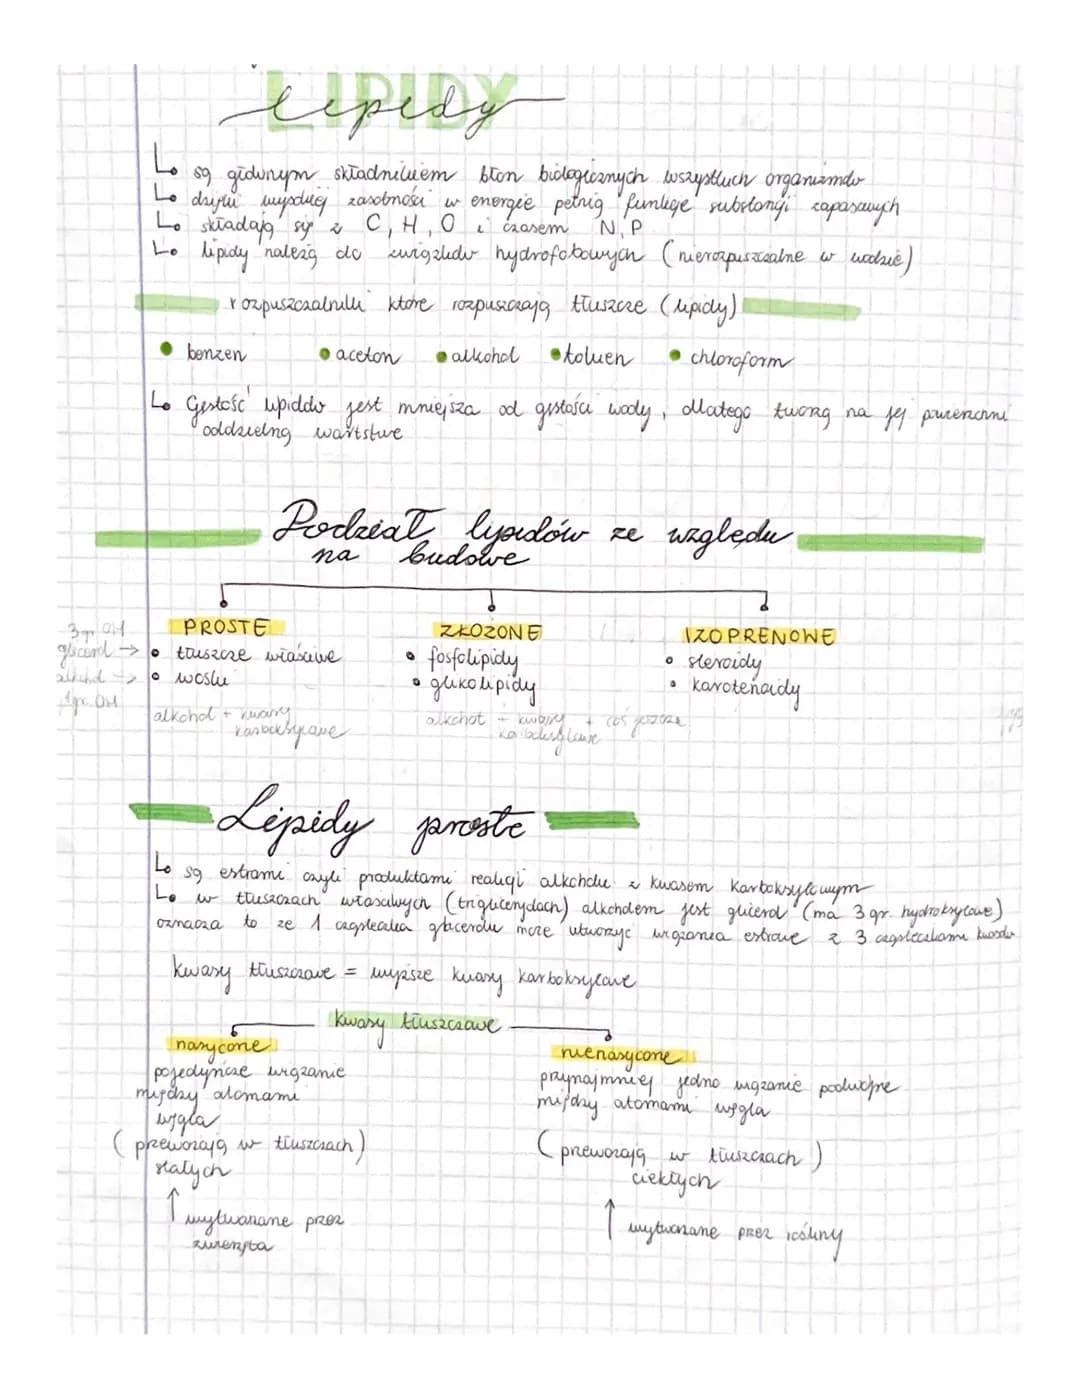 LIPIDY
lipidy
są głównym składnikiem błon biologicznych wszystkich organizmów
dzięki wysokiej zasobności w energię pełnią funkcje substancji zapasowych
składają się z C, H, O i czasem N, P
lipidy należą do związków hydrofobowych (nierozpuszczalne w wodzie)
rozpuszczalniki które rozpuszczają tłuszcze (lipidy)
• benzen • aceton • alkohol • toluen • chloroform
Gęstość lipidów jest mniejsza od gęstości wody, dlatego tworzą na jej powierzchni
oddzielną warstwe
Podział lipidów ze względu
na budowe
PROSTE ZŁOŻONE IZOPRENOWE
3 gr. OH
glicerol → • tłuszcze właściwe • fosfolipidy • steroidy
alkohol → • woski • glikolipidy • karotenoidy
1 gr. OH
alkohol + kwasy alkohol + kwasy + coś jeszcze
karboksylowe karboksylowe
Lipidy proste
są estrami czyli produktami reakcji alkoholu z kwasem karboksylowym
w tłuszczach właściwych (triglicerydach) alkoholem jest glicerol (ma 3 gr. hydroksylowe)
oznacza to ze 1 cząsteczka glicerolu może utworzyć wiązania estrowe z 3 cząsteczkami kwasów
kwasy tłuszczowe = wyższe kwasy karboksylowe
kwasy tłuszczowe
nasycone nienasycone
pojedyńcze wiązanie przynajmniej jedno wiązanie podwójne
między atomami między atomami węgla
węgla
(przeważają w tłuszczach) (przeważają w tłuszczach)
stałych ciekłych
↑ wytwarzane przez ↑ wytwarzane przez rośliny
zwierzęta